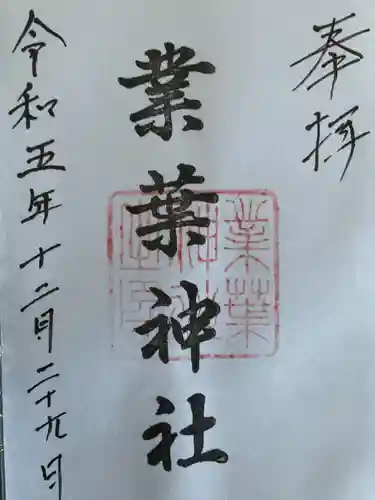 奉拝
業葉神社
業葉
令和五年十二月二十九日